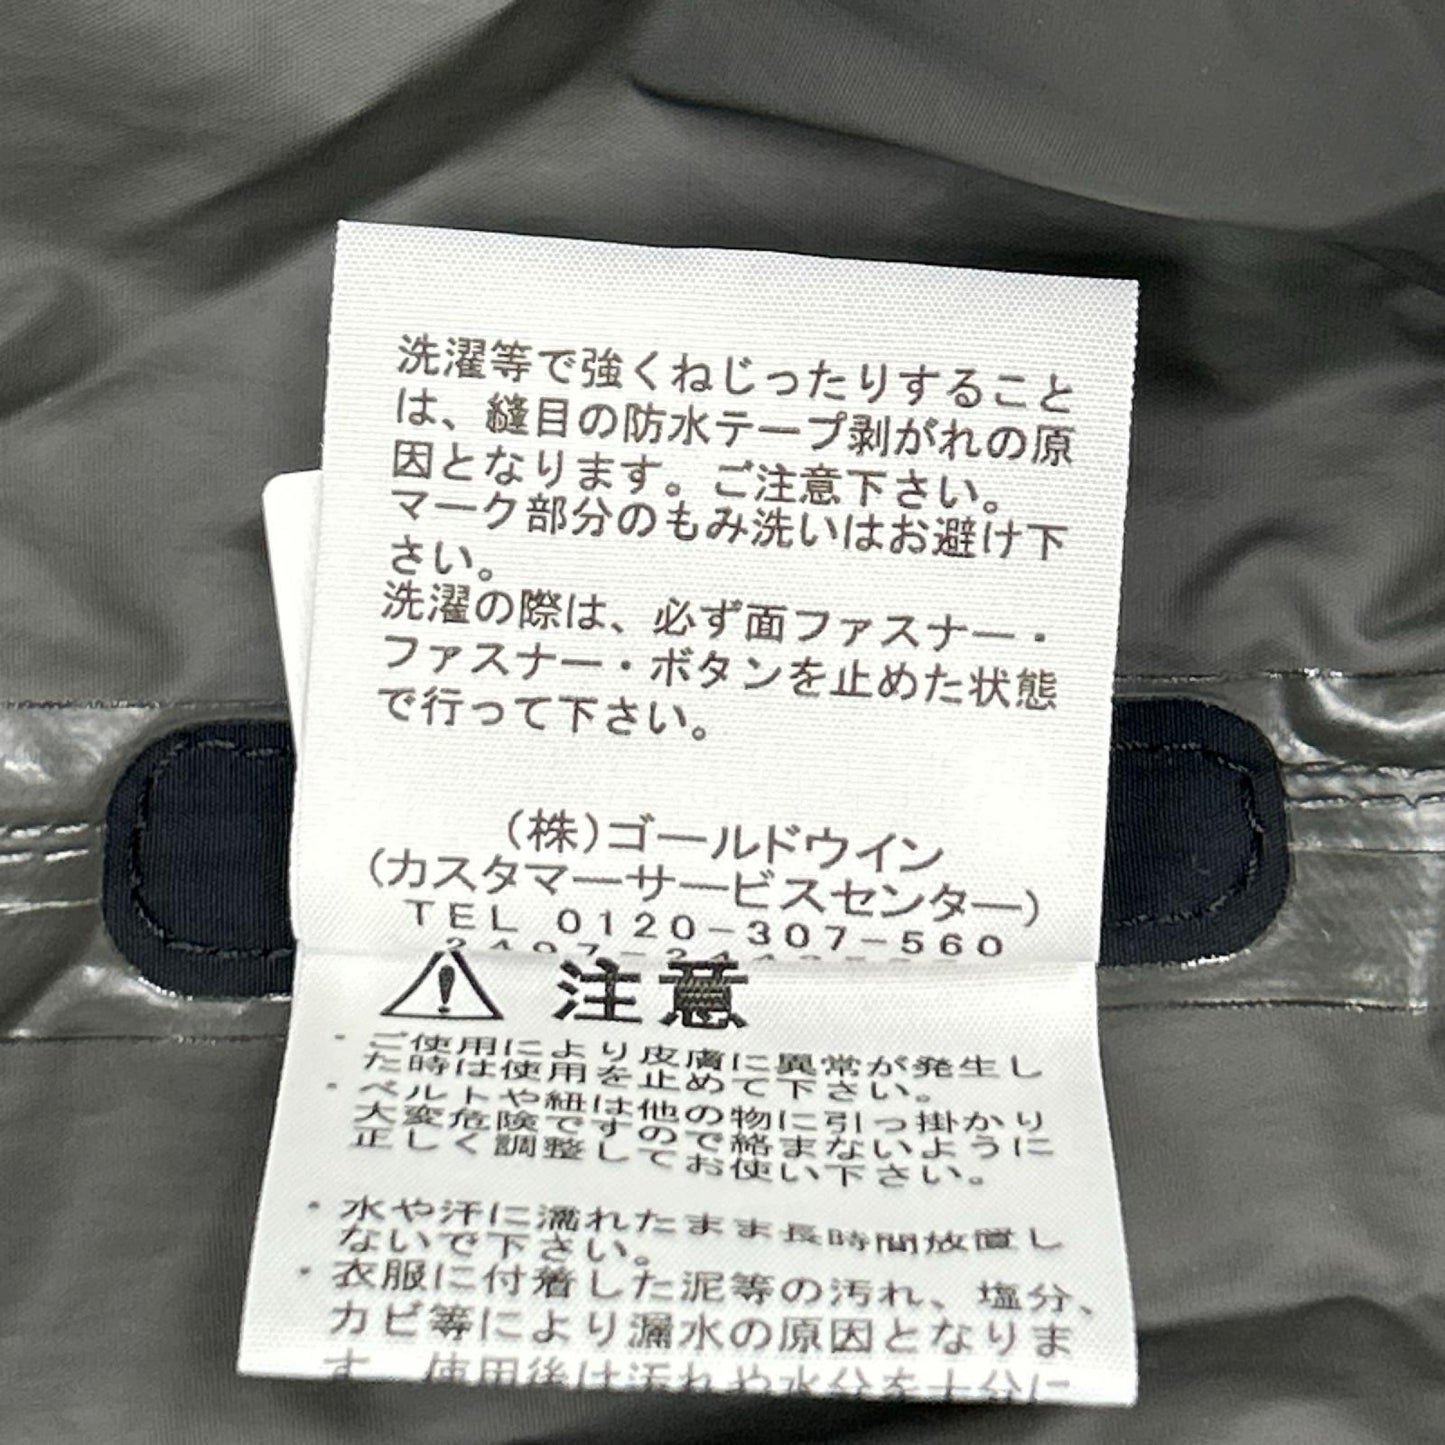 洗濯等で強くねじったりすること
は、縫目の防水テープ剥がれの原
因となります。ご注意下さい。
マーク部分のもみ洗いはお避け下
さい。
洗濯の際は、必ず面ファスナー・
ファスナー・ボタンを止めた状態
で行って下さい。
(株)ゴールドウイン
(カスタマーサービスセンター)
TEL 0120-307-560
注意
・ご使用により皮膚に異常が発生し
た時は使用を止めて下さい。
・ベルトや紐は他の物に引っ掛かり
大変危険ですので絡まないように
正しく調整してお使い下さい。
・水や汗に濡れたまま長時間放置し
ないで下さい。
・衣服に付着した泥等の汚れ、塩分、
カビ等により漏水の原因となりま
す。使用後は汚れや水分を十分に